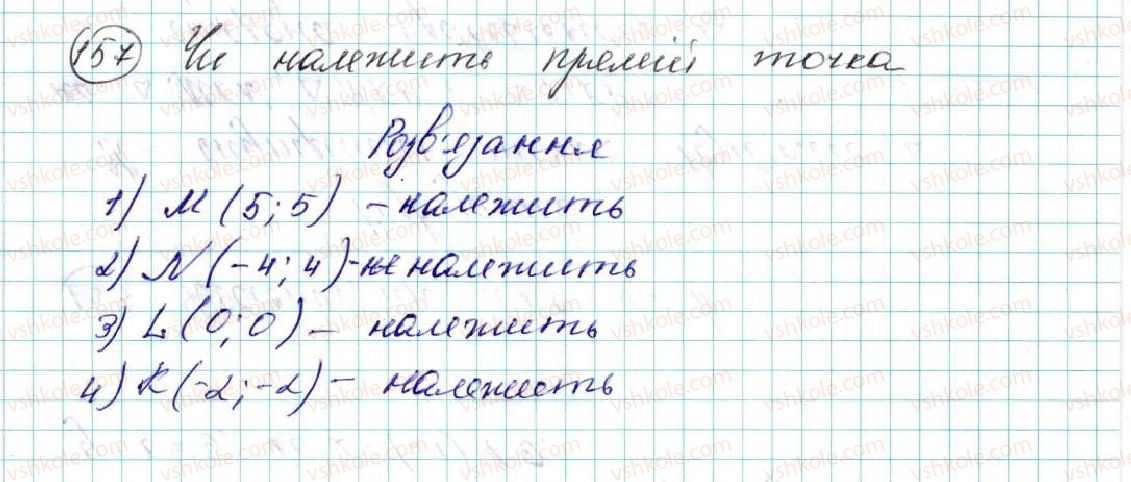 157 Чи належить прямій точка
Розв'язання
1) M (5; 5) – належить
2) N (-4; 4) - не належить
3) L (0; 0) – належить
4) K (-2; -2) – належить